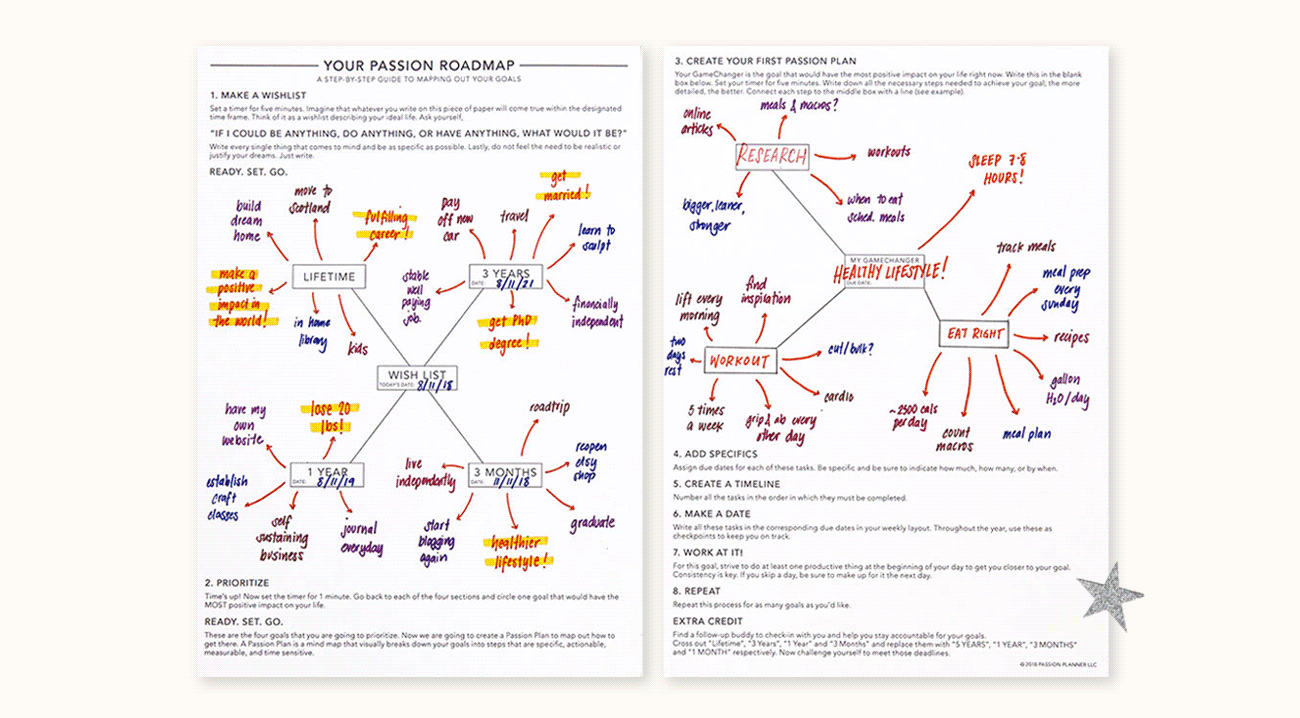 YOUR PASSION ROADMAP
A STEP-BY-STEP GUIDE TO MAPPING OUT YOUR GOALS
1. MAKE A WISHLIST
Set a timer for five minutes. Imagine that whatever you write on this piece of paper will come true within the designated
time frame. Think of it as a wishlist describing your ideal life. Ask yourself,
"IF I COULD BE ANYTHING, DO ANYTHING, OR HAVE ANYTHING, WHAT WOULD IT BE?"
Write every single thing that comes to mind and be as specific as possible. Lastly, do not feel the need to be realistic or
justify your dreams. Just write.
READY. SET. GO.
build
dream
home
move to
scotland
fulfilling
career!
make a
positive
impact in
the world!
LIFETIME
in home
library
kids
pay
off new
car
travel
get
married!
learn to
sculpt
stable
well
paying
job.
3 YEARS
DATE: 8/11/21
get PhD
degree!
financially
independent
WISH LIST
TODAY'S DATE: 8/11/18
have my
own
website
lose 20
lbs!
establish
craft
classes
1 YEAR
DATE: 8/11/19
self
sustaining
business
journal
everyday
roadtrip
live
independently
3 MONTHS
DATE: 11/11/18
reopen
etsy
shop
start
blogging
again
healthier
lifestyle!
graduate
2. PRIORITIZE
Time's up! Now set the timer for 1 minute. Go back to each of the four sections and circle one goal that would have the
MOST positive impact on your life.
READY. SET. GO.
These are the four goals that you are going to prioritize. Now we are going to create a Passion Plan to map out how to
get there. A Passion Plan is a mind map that visually breaks down your goals into steps that are specific, actionable,
measurable, and time sensitive.
3. CREATE YOUR FIRST PASSION PLAN
Your GameChanger is the goal that would have the most positive impact on your life right now. Write this in the blank
box below. Set your timer for five minutes. Write down all the necessary steps needed to achieve your goal; the more
detailed, the better. Connect each step to the middle box with a line (see example).
online
articles
meals & macros?
RESEARCH
workouts
bigger, leaner,
stronger
when to eat
sched. meals
SLEEP 7-8
HOURS!
MY GAMECHANGER
HEALTHY LIFESTYLE!
DUE DATE:
lift every
morning
find
inspiration
two
days
rest
WORKOUT
cut/bulk?
5 times
a week
grip & ab every
other day
cardio
track meals
meal prep
every
sunday
EAT RIGHT
recipes
gallon
H2O/day
~2500 cals
per day
count
macros
meal plan
4. ADD SPECIFICS
Assign due dates for each of these tasks. Be specific and be sure to indicate how much, how many, or by when.
5. CREATE A TIMELINE
Number all the tasks in the order in which they must be completed.
6. MAKE A DATE
Write all these tasks in the corresponding due dates in your weekly layout. Throughout the year, use these as
checkpoints to keep you on track.
7. WORK AT IT!
For this goal, strive to do at least one productive thing at the beginning of your day to get you closer to your goal.
Consistency is key. If you skip a day, be sure to make up for it the next day.
8. REPEAT
Repeat this process for as many goals as you'd like.
EXTRA CREDIT
Find a follow-up buddy to check-in with you and help you stay accountable for your goals.
Cross out "Lifetime", "3 Years", "1 Year" and "3 Months" and replace them with "5 YEARS", "1 YEAR", "3 MONTHS"
and "1 MONTH" respectively. Now challenge yourself to meet those deadlines.
© 2018 PASSION PLANNER LLC